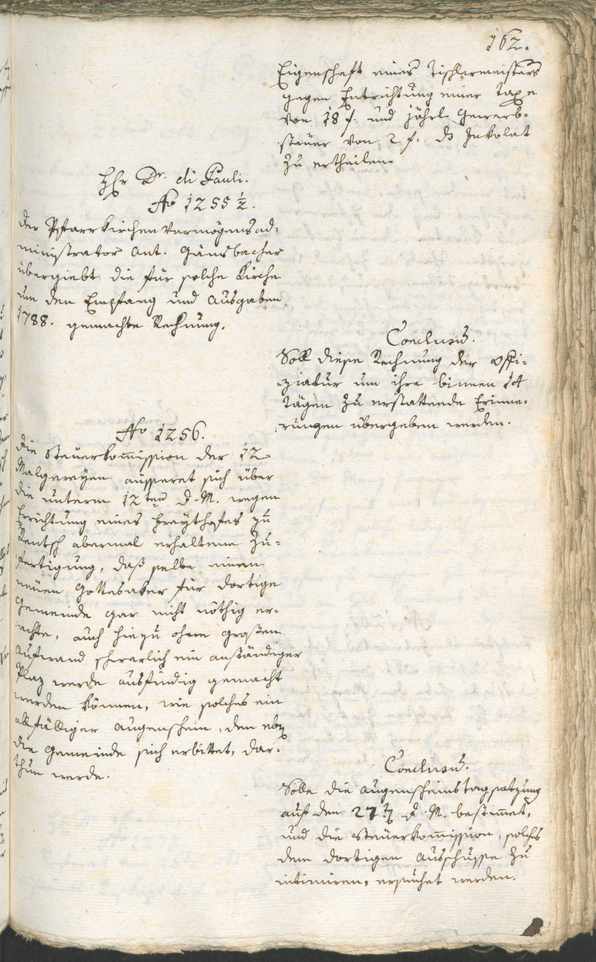 162.
Eigenschaft eines Tischlermeisters
gegen Entrichtung einer Taxe
von 18 f. und jährl. Gewerb-
steuer von 2 f. das Inkolat
zu ertheilen.
Hr Dr. di Pauli.
No 1255 1/2.
Der Pfarrkirchenvermögensad-
ministrator Ant. Gänsbacher
übergiebt die für solche Kirche
um den Empfang und Ausgaben
1788. gemachte Rechnung.
Conclusum.
Soll diese Rechnung der Offi-
ziatur um ihre binnen 14
Tägen zu erstattende Erinne-
rungen übergeben werden.
No 1256.
Die Steuerkommission der 12
Malgereyen äusseret sich über
die unterm 12ten d. M. wegen
Errichtung eines Freythofes zu
Rentsch abermal erhaltene Zu-
fertigung, daß selbe einen
neuen Gottesaker für dortige
Gemeinde gar nicht nöthig er-
achte, auch hiezu ohne großen
Aufwand schwerlich ein anständiger
Plaz werde ausfindig gemacht
werden können, wie solches ein
allfälliger Augenschein, den
die Gemeinde sich erbittet, dar-
thun werde.
Conclusum.
Solle die Augenscheinstagsatzung
auf den 27ten d. M. bestimmet,
und die Steuerkommission, solches
dem dortigen Ausschusse zu
intimiren, ersuchet werden.